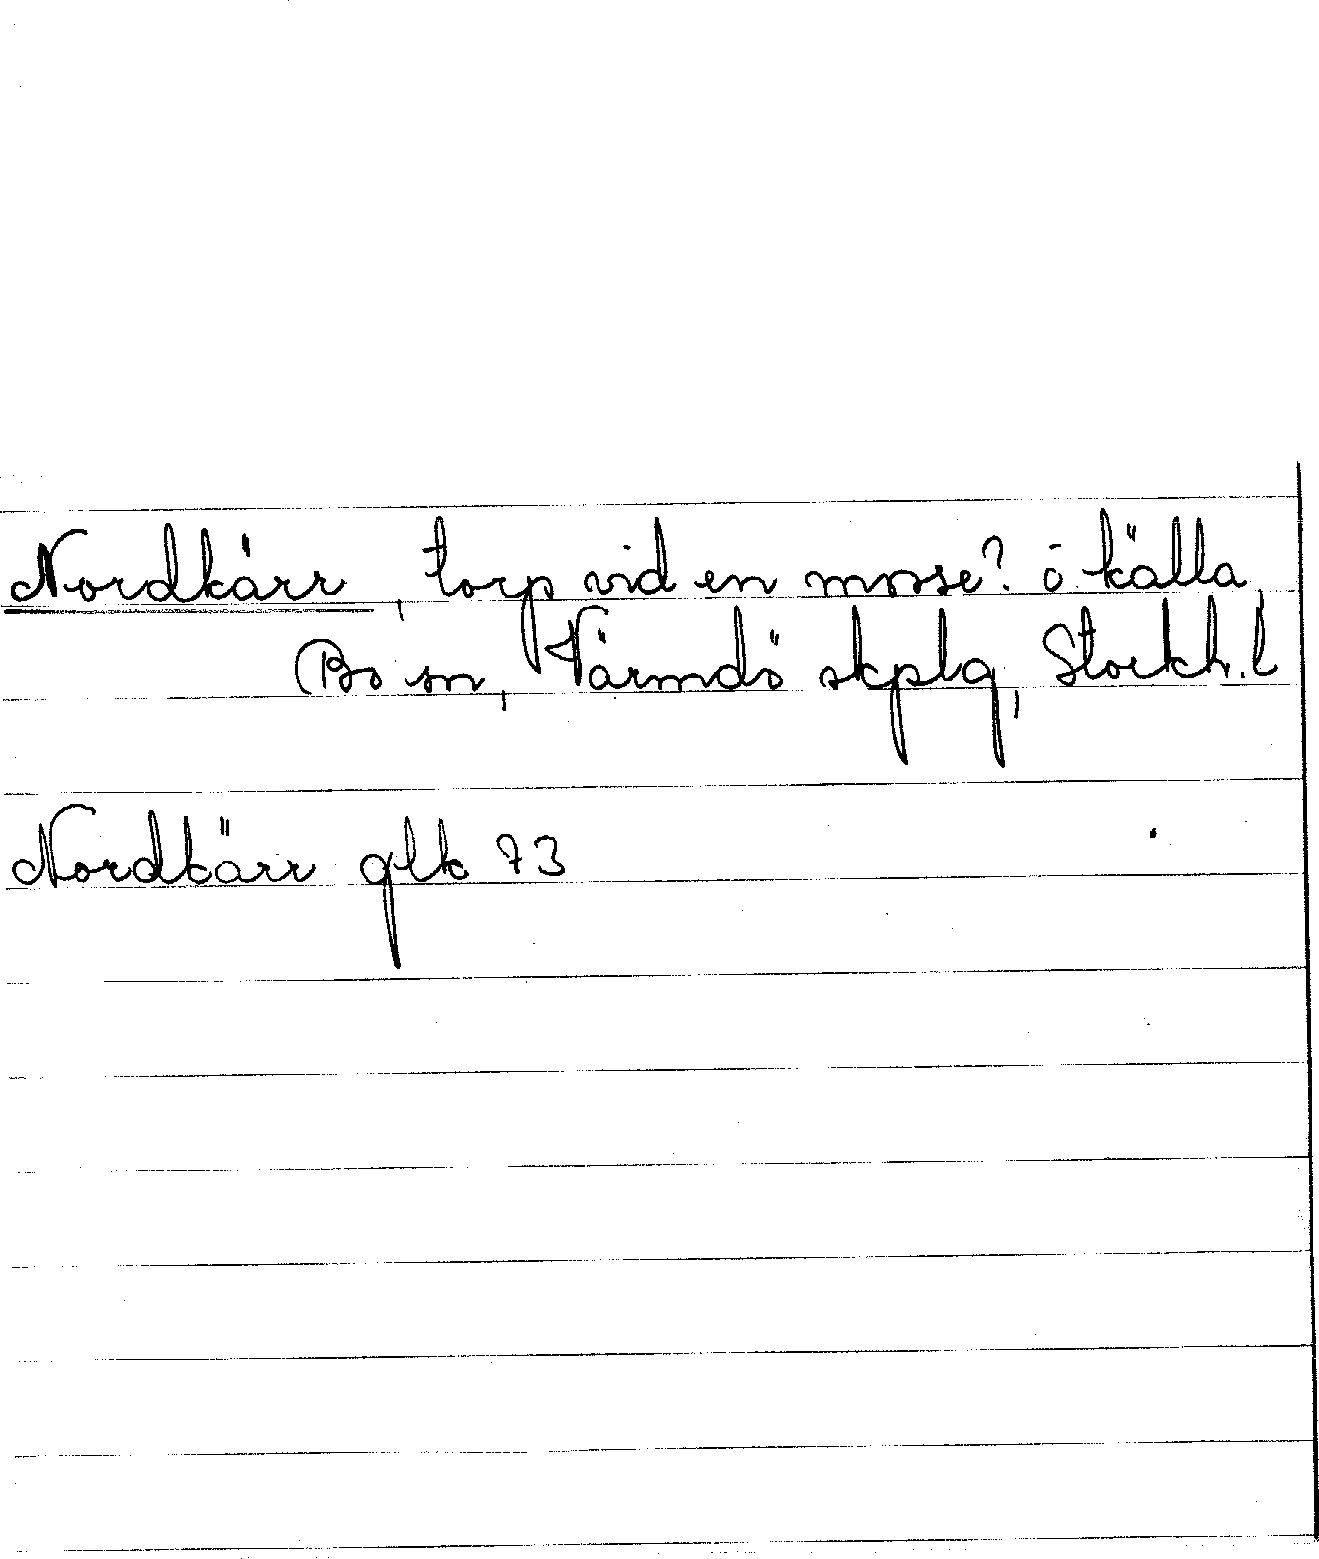 Nordkärr, torp vid en mosse? o källa
Bo sn, Värmdö skplg, Stockh. l
Nordkärr glk 73